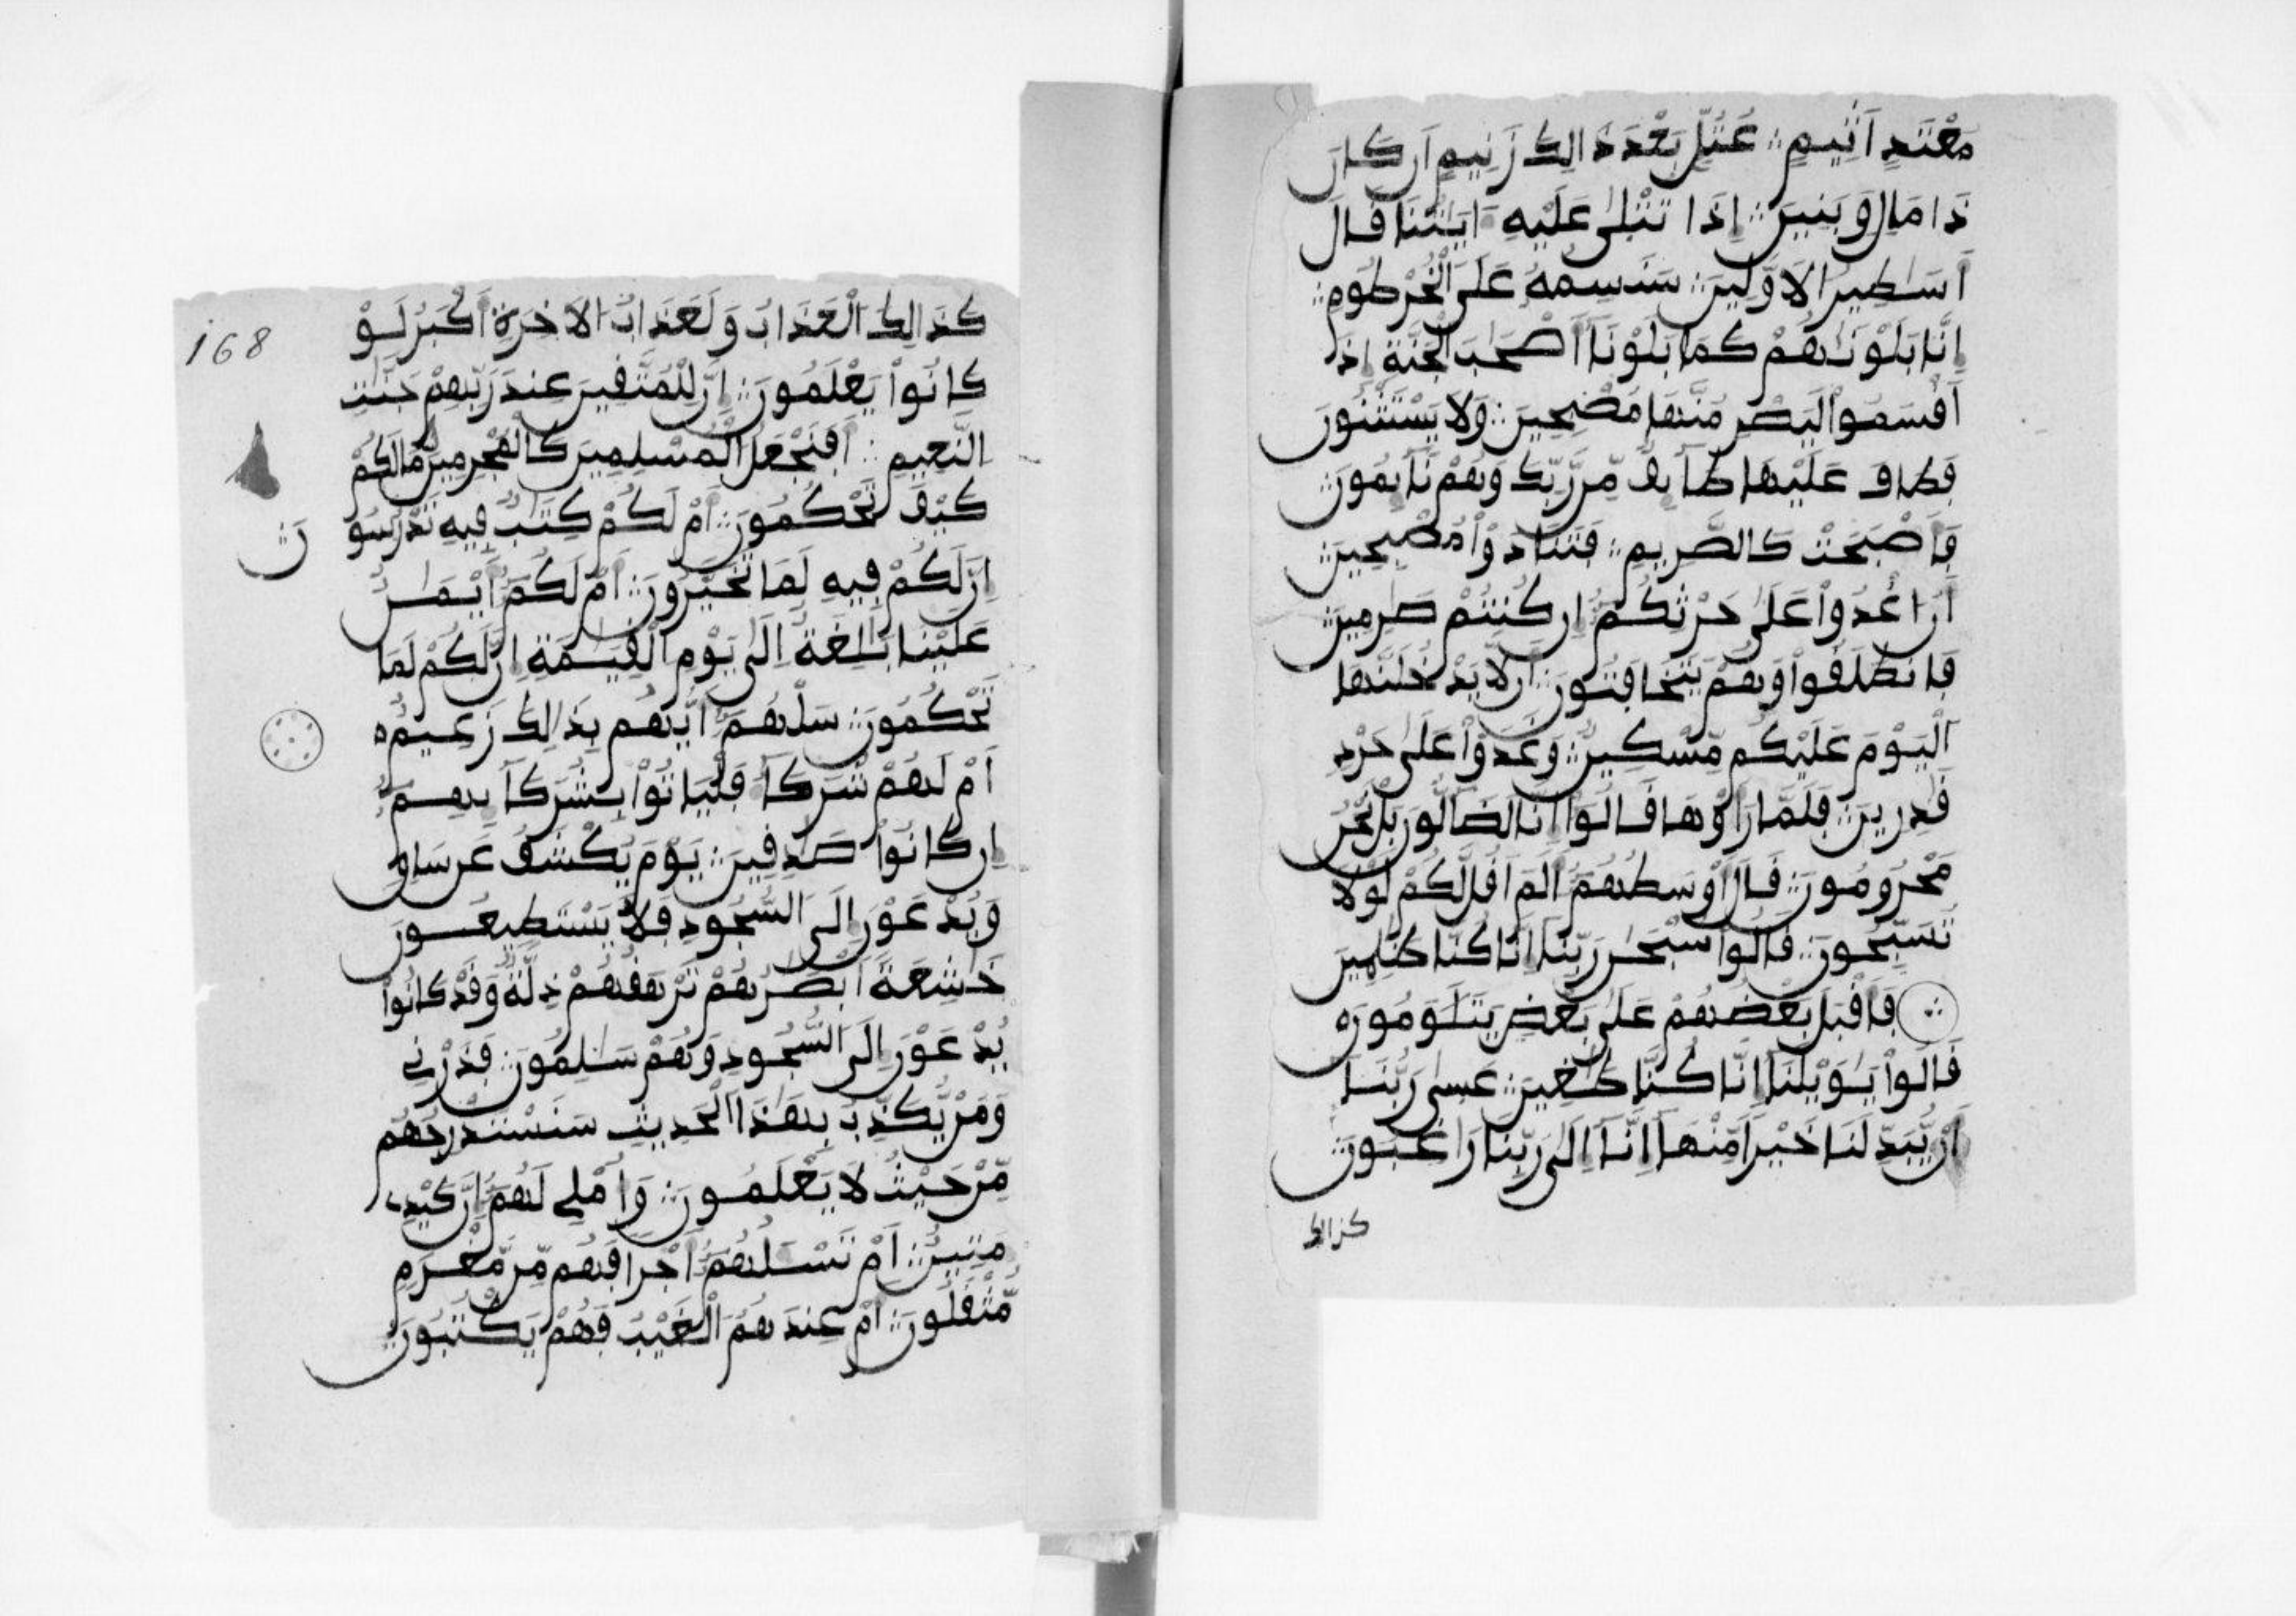 مُعْتَدٍ اَثِيمٍ عُتُلٍّ بَعْدَ ذَالِكَ زَنِيمٍ اَن كَانَ
ذَا مَالٍ وَبَنِينَ إِذَا تُتْلَىٰ عَلَيْهِ ءَايَٰتُنَا قَالَ
أَسَٰطِيرُ الَاوَّلِينَ سَنَسِمُهُ عَلَى الْخُرْطُومِ
إِنَّا بَلَوْنَٰهُمْ كَمَا بَلَوْنَا أَصْحَٰبَ الْجَنَّةِ إِذَ
اَقْسَمُواْ لَيَصْرِمُنَّهَا مُصْبِحِينَ وَلَا يَسْتَثْنُونَ
فَطَافَ عَلَيْهَا طَآئِفٌ مِّن رَّبِّكَ وَهُمْ نَآئِمُونَ
فَأَصْبَحَتْ كَالصَّرِيمِ فَتَنَادَوْاْ مُصْبِحِينَ
أَنُ اغْدُواْ عَلَىٰ حَرْثِكُمُ إِن كُنتُمْ صَٰرِمِينَ
فَانطَلَقُواْ وَهُمْ يَتَخَٰفَتُونَ أَن لَّا يَدْخُلَنَّهَا
الْيَوْمَ عَلَيْكُم مِّسْكِينٌ وَغَدَوْاْ عَلَىٰ حَرْدٍ
قَٰدِرِينَ فَلَمَّا رَأَوْهَا قَالُواْ إِنَّا لَضَآلُّونَ بَلْ نَحْنُ
مَحْرُومُونَ قَالَ أَوْسَطُهُمُ أَلَمَ اَقُل لَّكُمْ لَوْلَا
تُسَبِّحُونَ قَالُواْ سُبْحَٰنَ رَبِّنَا إِنَّا كُنَّا ظَٰلِمِينَ
فَأَقْبَلَ بَعْضُهُمْ عَلَىٰ بَعْضٍ يَتَلَٰوَمُونَ
قَالُواْ يَٰوَيْلَنَا إِنَّا كُنَّا طَٰغِينَ عَسَىٰ رَبُّنَا
أَن يُّبَدِّلَنَا خَيْراً مِّنْهَا إِنَّا إِلَىٰ رَبِّنَا رَاغِبُونَ
كذالك
168
كَذَالِكَ الْعَذَابُ وَلَعَذَابُ الَاخِرَةِ أَكْبَرُ لَوْ
كَانُواْ يَعْلَمُونَ إِنَّ لِلْمُتَّقِينَ عِندَ رَبِّهِمْ جَنَّٰتِ
النَّعِيمِ أَفَنَجْعَلُ الْمُسْلِمِينَ كَالْمُجْرِمِينَ مَا لَكُمْ
كَيْفَ تَحْكُمُونَ أَمْ لَكُمْ كِتَٰبٌ فِيهِ تَدْرُسُو
نَ
إِنَّ لَكُمْ فِيهِ لَمَا تَخَيَّرُونَ أَمْ لَكُمُ أَيْمَٰنٌ
عَلَيْنَا بَٰلِغَةٌ اِلَىٰ يَوْمِ الْقِيَٰمَةِ إِنَّ لَكُمْ لَمَا
تَحْكُمُونَ سَلْهُمُ أَيُّهُم بِذَالِكَ زَعِيمٌ
أَمْ لَهُمْ شُرَكَآءُ فَلْيَاتُواْ بِشُرَكَآئِهِمُ
إِن كَانُواْ صَٰدِقِينَ يَوْمَ يُكْشَفُ عَن سَاقٍ
وَيُدْعَوْنَ إِلَى السُّجُودِ فَلَا يَسْتَطِيعُونَ
خَٰشِعَةً اَبْصَٰرُهُمْ تَرْهَقُهُمْ ذِلَّةٌ وَقَدْ كَانُواْ
يُدْعَوْنَ إِلَى السُّجُودِ وَهُمْ سَٰلِمُونَ فَذَرْنِے
وَمَنْ يُّكَذِّبُ بِهَٰذَا الْحَدِيثِ سَنَسْتَدْرِجُهُم
مِّنْ حَيْثُ لَا يَعْلَمُونَ وَأُمْلِے لَهُمُ إِنَّ كَيْدِے
مَتِينٌ أَمْ تَسْـَٔلُهُمُ أَجْراً فَهُم مِّن مَّغْرَمٍ
مُّثْقَلُونَ أَمْ عِندَهُمُ الْغَيْبُ فَهُمْ يَكْتُبُونَ